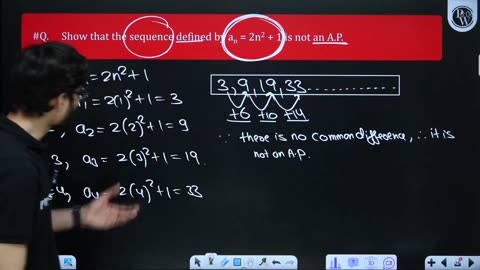 #Q. Show that the sequence defined by aₙ = 2n² + 1 is not an A.P.
= 2n²+1
= 2(1)²+1 = 3
a₂ = 2(2)²+1 = 9
3, a₃ = 2(3)²+1 = 19
4, a₄ = 2(4)²+1 = 33
3, 9, 19, 33 ..............
+6 +10 +14
∵ there is no common difference, ∴ it is
not an A.P.